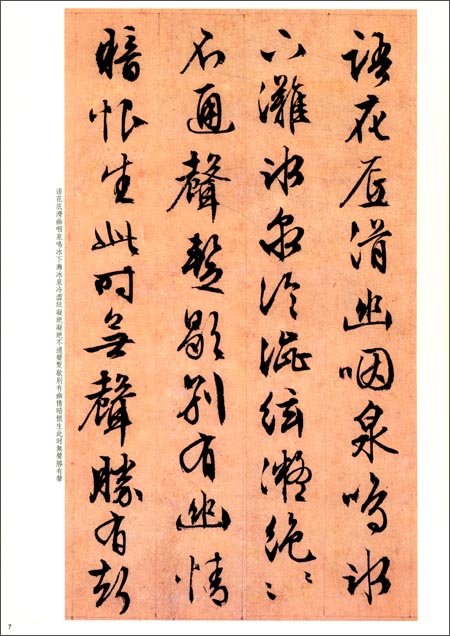 語花底滑幽咽泉鳴冰
下灘冰泉冷澀絃凝絕〻〻
不通聲暫歇別有幽情
暗恨生此時無聲勝有聲
语花底滑幽咽泉鳴冰下灘冰泉冷澀絃凝絶凝絶不通聲暫歇别有幽情暗恨生此时無聲勝有聲
7